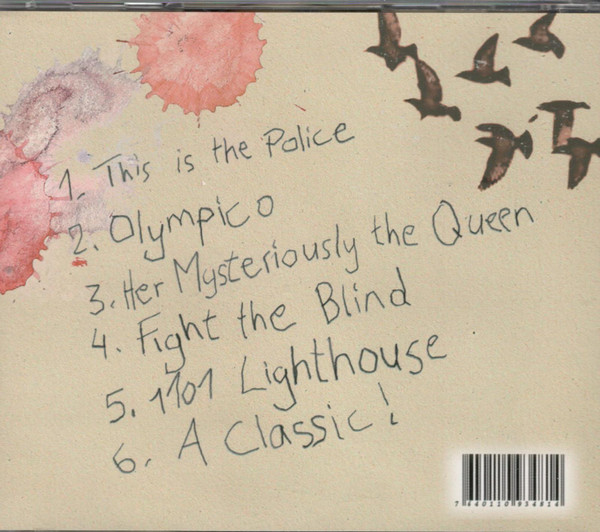 1. This is the Police
2. Olympico
3. Her Mysteriously the Queen
4. Fight the Blind
5. 1101 Lighthouse
6. A Classic!
7 640110 934814